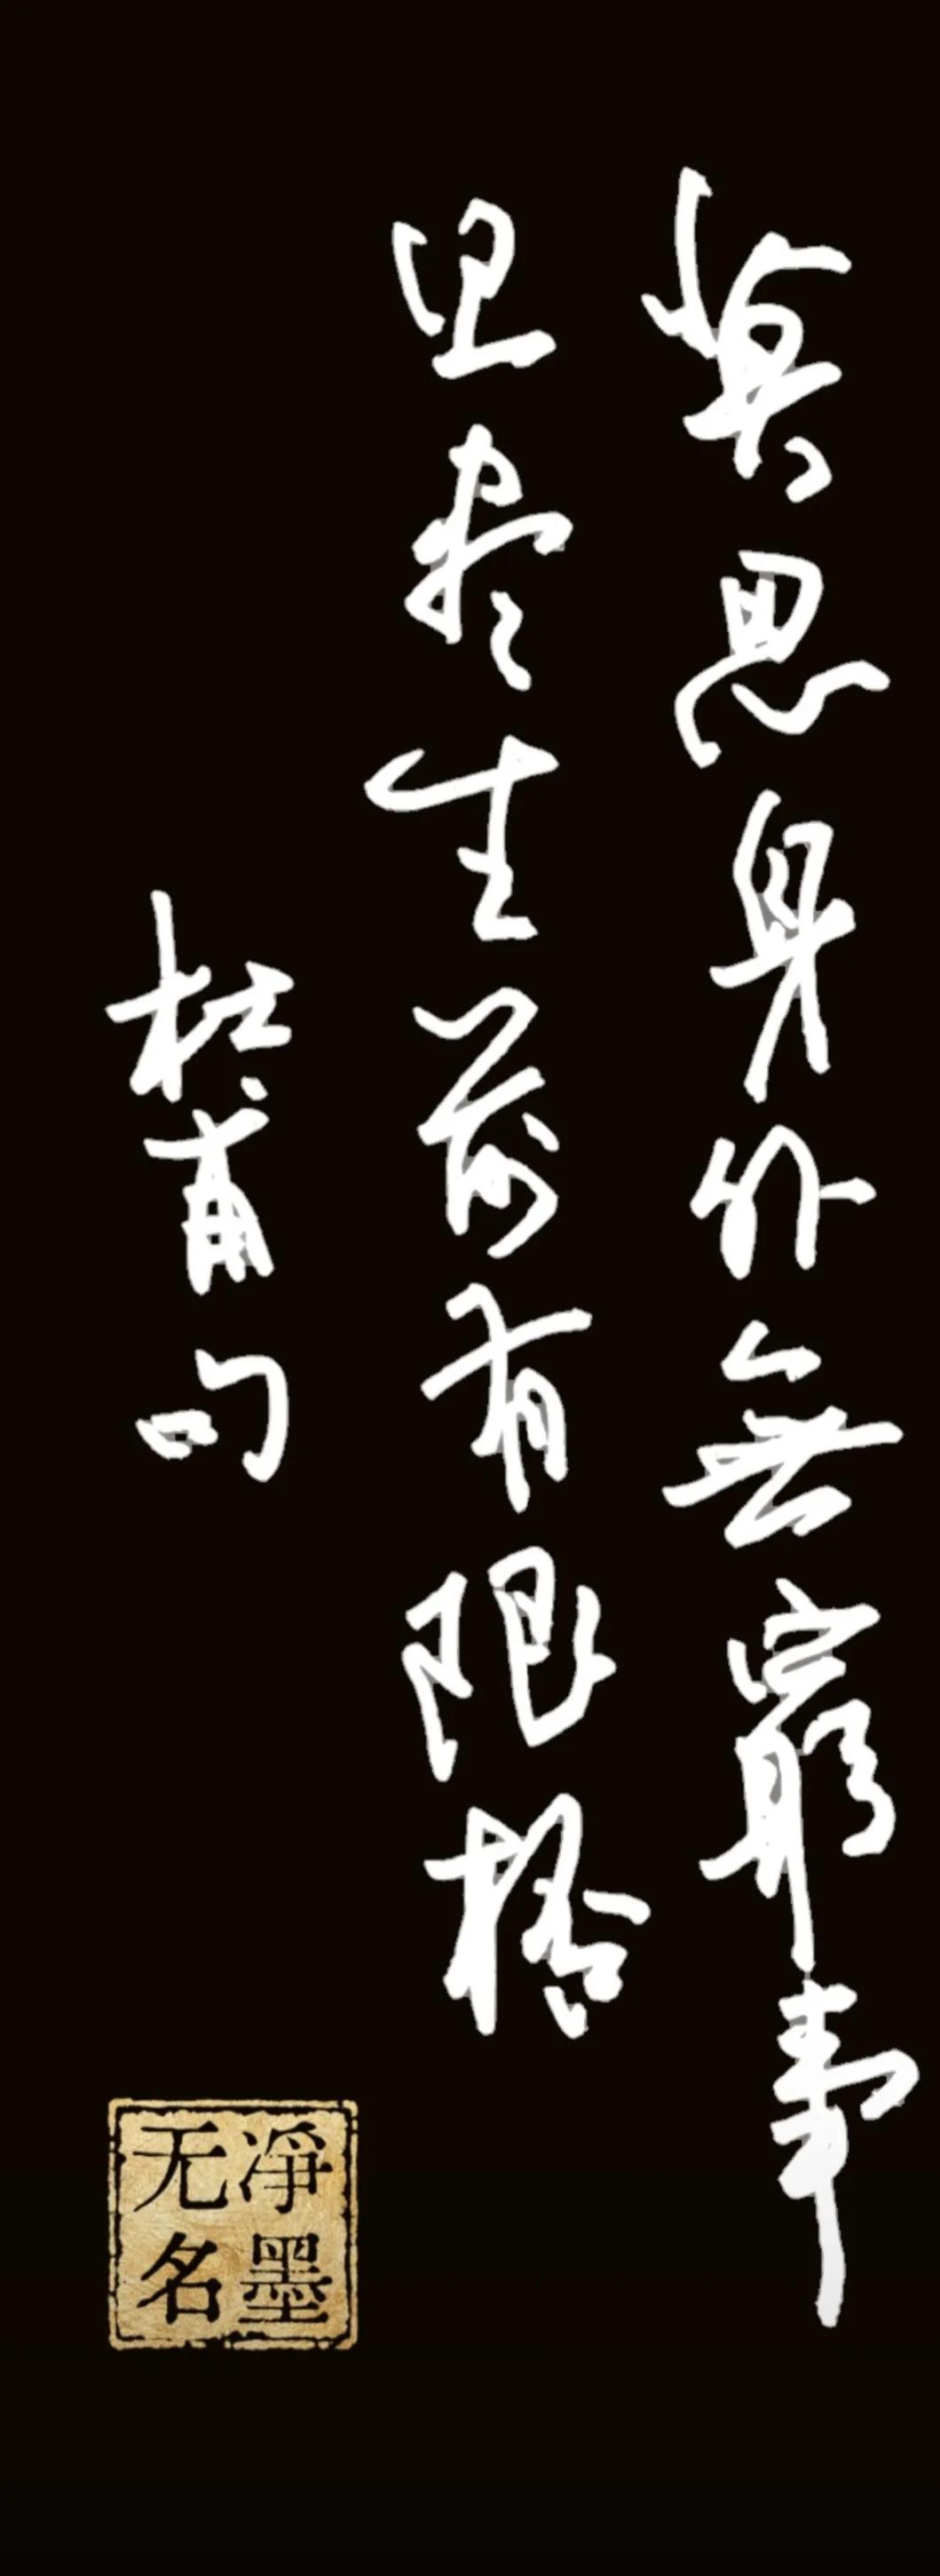 莫思身外無窮事
且尽生前有限桮
杜甫句
净墨
无名